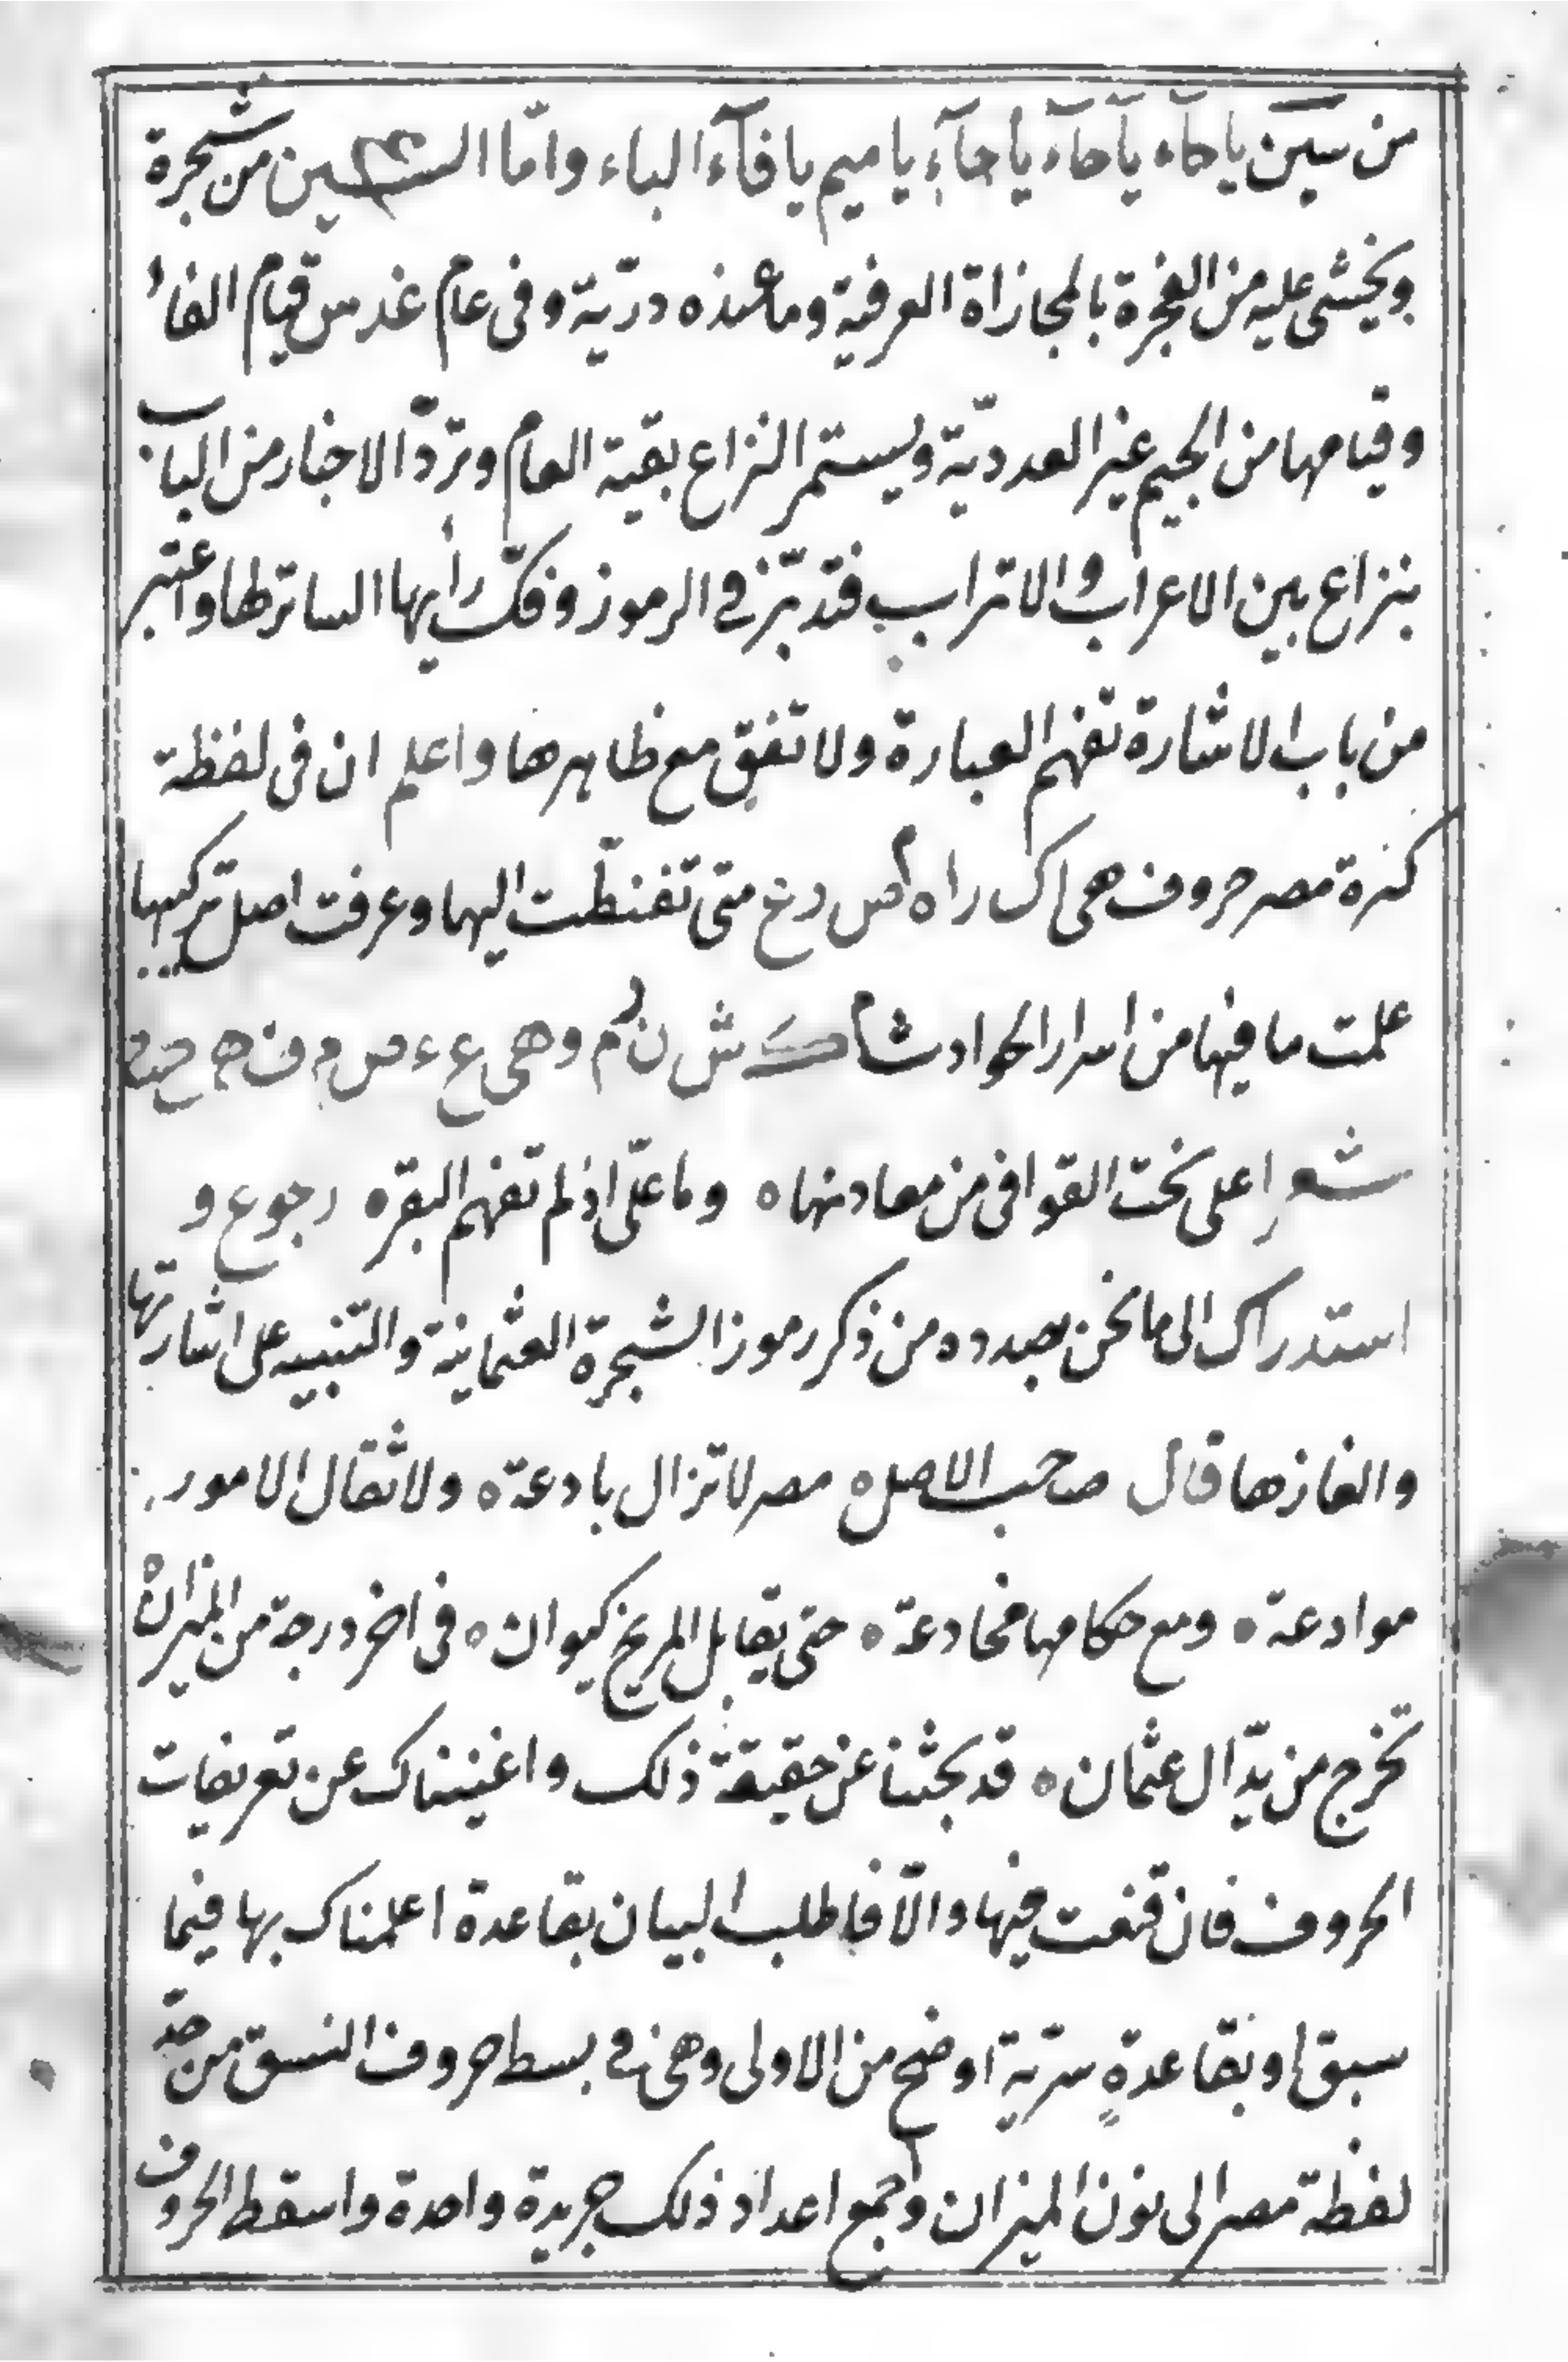 من سين يا حآء يآحآء يآ حآءِ يا ميم يا فآء الباء وامّا السين من شجرة
ويخشى عليه من الفجرة بالمجازاة العرفية وما هذه دريّة وفى عام غدس قيام الفاء
وقيامها من الجيم غير العدديّة ويستمر النزاع بقية العام وتردّ الاخبار من الباب
بنزاع بين الاعراب والاتراب فتدبّر فى الرموز وفكّ رأيها الساتر لها واعتبر
من باب الاشارة تفهم العبارة ولا تفق مع ظاهرها واعلم ان فى لفظة
كنزة مصر حروف هى اك راه م ص رخ متى تفنطّت اليها وعرفت اصل تركيبها
علمت ما فيها من اسرار الحوادث ا ك ش ن م وهى ع ء ص م ف ه
شعرِ اعلى نحت القوافى من معادنها ه وما علّى اذ لم تفهم البقره رجوع و
استدراك الى ما نحن بصدده من ذكر رموز الشجرة العثمانية والتنبيه على اشارتها
والغازها قال صاحب الاصل ه مصر لا تزال بادعة ه ولا ثقال الامور
موادعة ه ومع حكامها مخادعة ه حتى يقابل المريخ كيوان ه فى اخر درجة من الميزان ه
تخرج من يدّ ال عثمان ه قد بحثنا عن حقيقة ذلك واغنيناك عن تعريفات
الحروف فان قنعت فيها والّا فاطلب البيان بقاعدة اعلمناك بها فيما
سبق او بقاعدةٍ سرّية اوضح من الاولى وهى فى بسط حروف النسق من حدّ
لفظة مصر الى نون الميزان واجمع اعداد ذلك جريدة واحدة واسقط الحروف